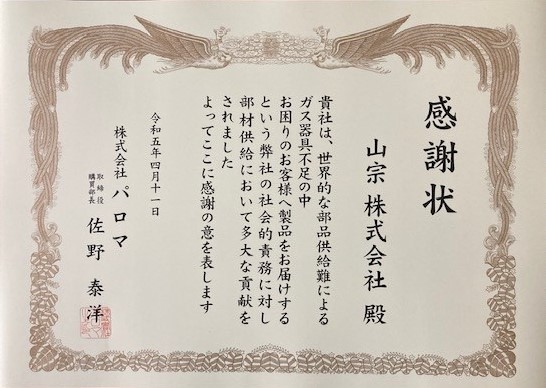 感謝状
山宗株式会社 殿
貴社は、世界的な部品供給難による
ガス器具不足の中
お困りのお客様へ製品をお届けする
という弊社の社会的責務に対し
部材供給において多大な貢献を
されました
よってここに感謝の意を表します
令和五年四月十一日
株式会社 パロマ
取締役
購買部長
佐野 泰洋